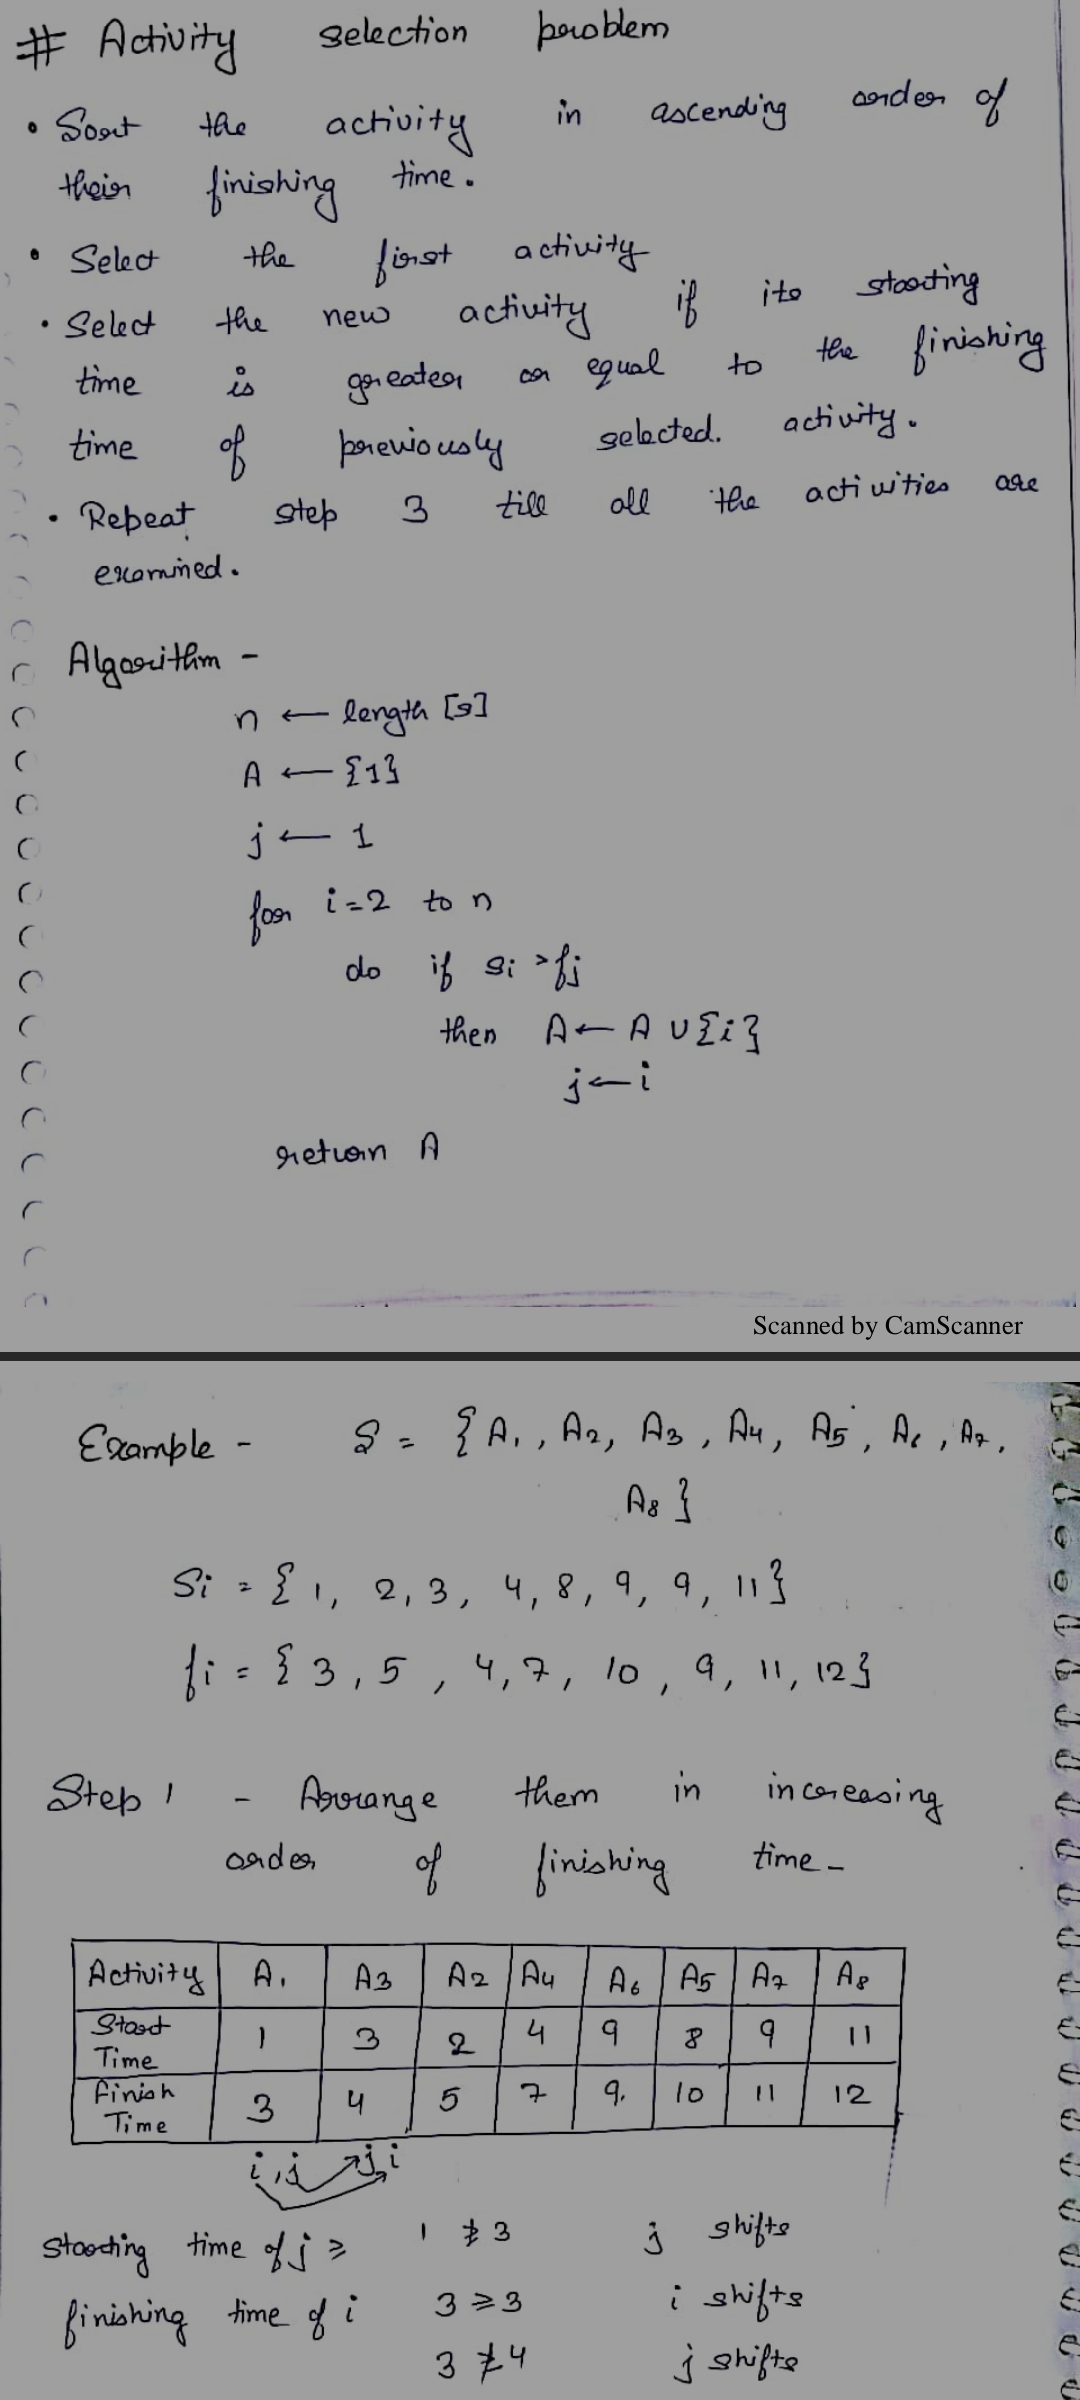 # Activity selection problem
• Sort the activity in ascending order of
their finishing time.
• Select the first activity
• Select the new activity if its starting
time is greater or equal to the finishing
time of previously selected. activity.
• Repeat step 3 till all the activities are
examined.
Algorithm -
n ← length [s]
A ← {1}
j ← 1
for i=2 to n
do if si >fj
then A ← A ∪ {i}
j ← i
return A
Scanned by CamScanner
Example - S = { A1, A2, A3, A4, A5, A6, A7,
A8 }
Si = { 1, 2, 3, 4, 8, 9, 9, 11}
fi = { 3, 5, 4, 7, 10, 9, 11, 12}
Step 1 - Arrange them in increasing
order of finishing time -
Activity A1 A3 A2 A4 A6 A5 A7 A8
Start Time 1 3 2 4 9 8 9 11
Finish Time 3 4 5 7 9. 10 11 12
i, j j, i
starting time of j ≥ 1 ≱ 3 j shifts
finishing time of i 3 ≥ 3 i shifts
3 ≱ 4 j shifts